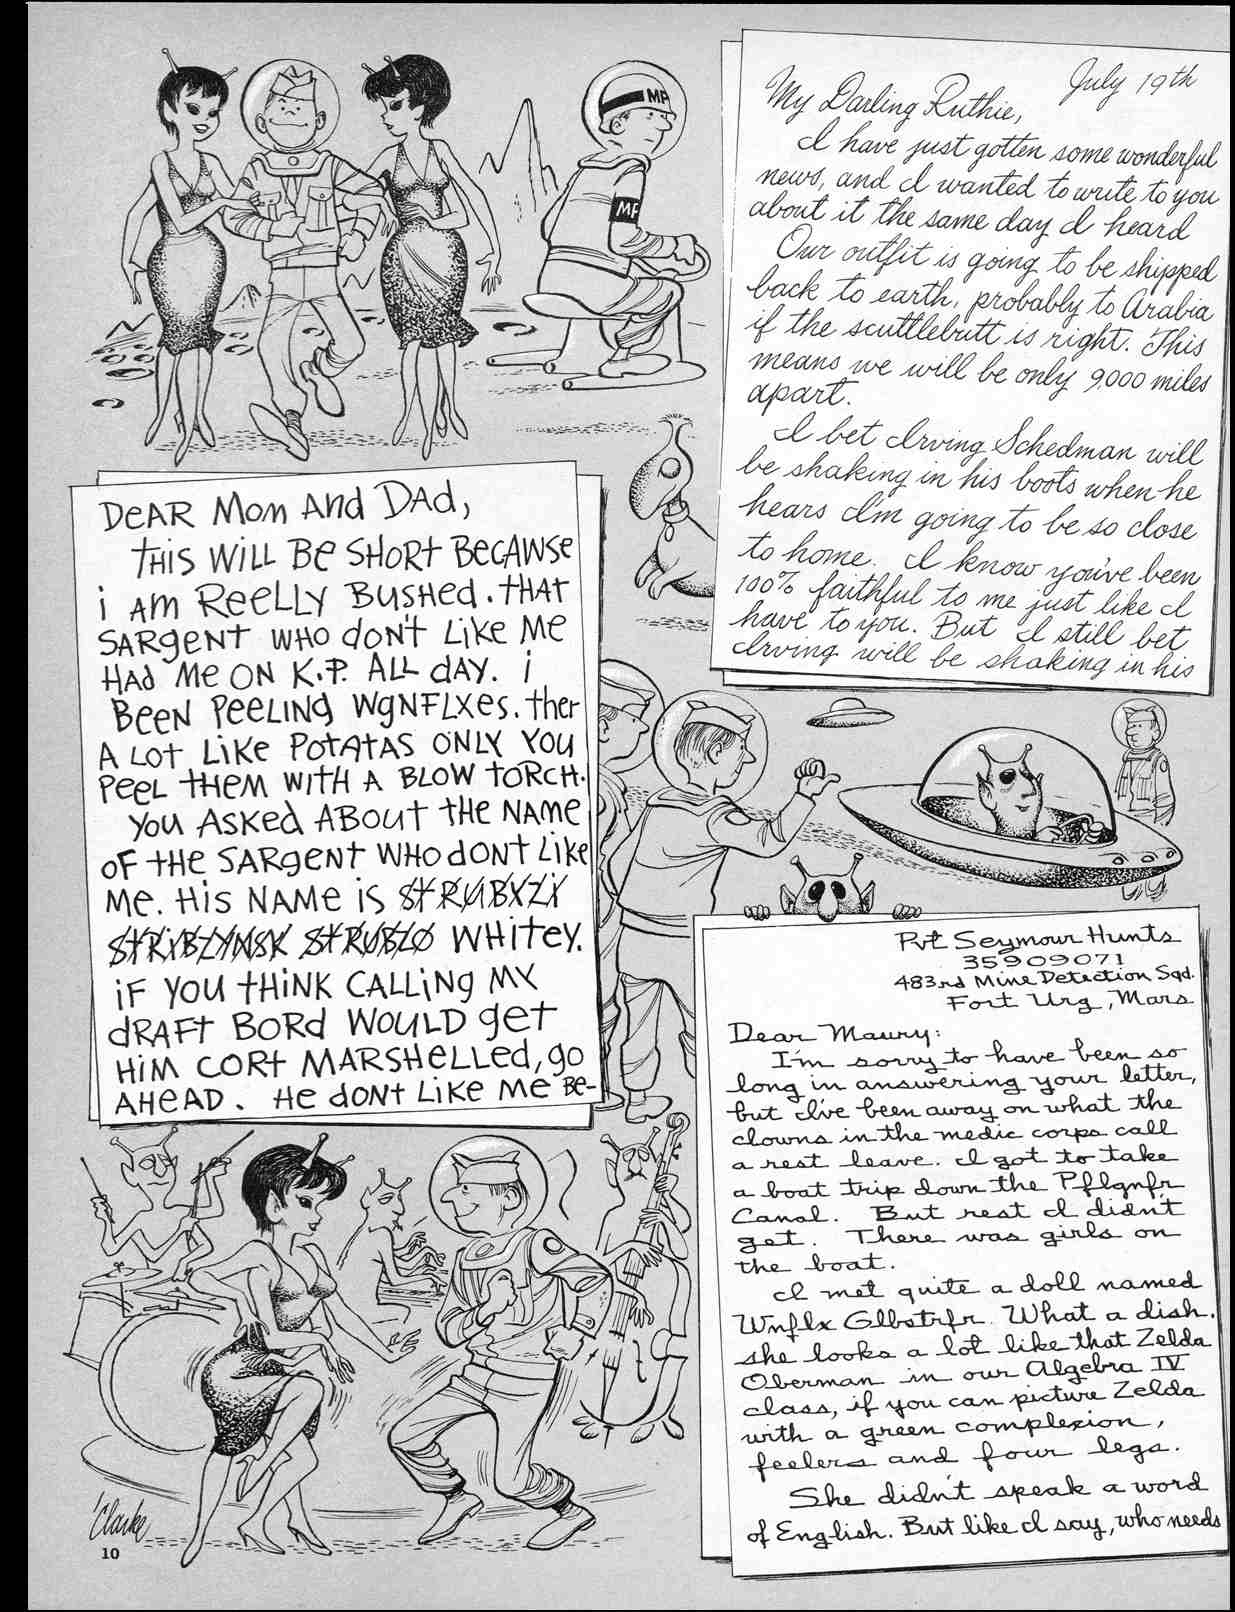 MP
MP
July 19th
My Darling Ruthie,
I have just gotten some wonderful
news, and I wanted to write to you
about it the same day I heard
Our outfit is going to be shipped
back to earth, probably to Arabia
if the scuttlebutt is right. This
means we will be only 9,000 miles
apart.
I bet Irving Schedman will
be shaking in his boots when he
hears I'm going to be so close
to home. I know you've been
100% faithful to me just like I
have to you. But I still bet
Irving will be shaking in his
DeAR Mom And DAd,
tHiS WiLL Be SHORt BeCAWSe
i AM ReeLLY BUSHed. tHAT
SARgENT WHO doN't LiKe Me
HAd Me ON K.P. ALL dAY. i
BeeN PeeLiNg WgNFLXes. tHer
A LOt LiKe POtAtAS ONLY YOU
PeeL tHeM WitH A BLOW tORCH.
YOU ASKed ABOUt tHe NAMe
OF tHe SARgeNt WHO dONt LiKe
Me. HiS NAMe iS StRUBXZi
StRiBZYNSK StRUBZO WHiteY.
iF YOU tHiNK CALLiNg MY
dRAFt BORd WOULD get
HiM CORt MARSHeLLed, go
AHeAD. He dONt LiKe Me Be-
Pvt Seymour Hunts
35909071
483rd Mine Detection Sqd.
Fort Urg, Mars
Dear Maury:
I'm sorry to have been so
long in answering your letter,
but I've been away on what the
clowns in the medic corps call
a rest leave. I got to take
a boat trip down the Pflgnfr
Canal. But rest I didn't
get. There was girls on
the boat.
I met quite a doll named
Wnflx Glbstrfr. What a dish.
she looks a lot like that Zelda
Oberman in our Algebra IV
class, if you can picture Zelda
with a green complexion,
feelers and four legs.
She didn't speak a word
of English. But like I say, who needs
Clarke
10